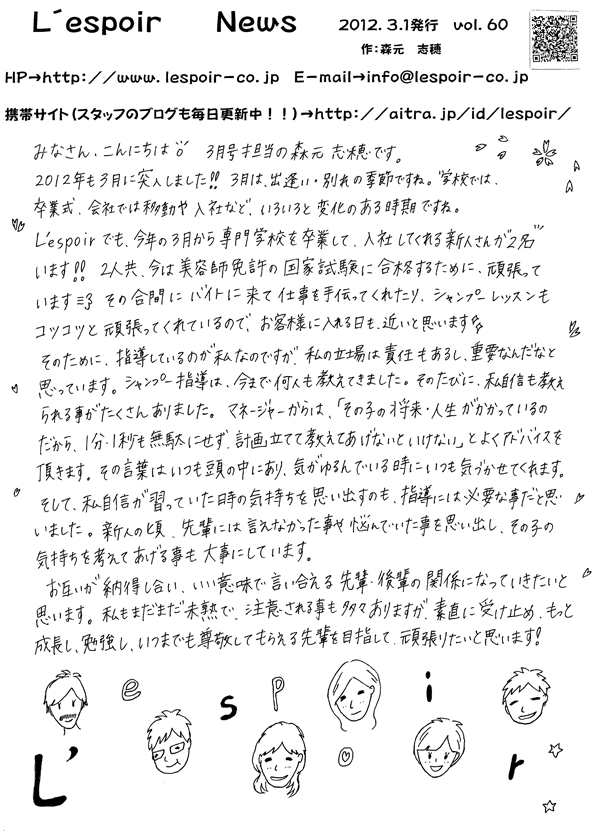 L'espoir News 2012.3.1発行 vol.60
作:森元 志穂
HP→http://www.lespoir-co.jp E-mail→info@lespoir-co.jp
携帯サイト(スタッフのブログも毎日更新中!!)→http://aitra.jp/id/lespoir/
みなさん、こんにちは 3月号担当の森元 志穂です。
2012年も3月に突入しました!! 3月は、出逢い・別れの季節ですね。学校では、
卒業式、会社では移動や入社など、いろいろと変化のある時期ですね。
L'espoirでも、今年の3月から専門学校を卒業して、入社してくれる新人さんが2名
います!! 2人共、今は美容師免許の国家試験に合格するために、頑張って
います その合間にバイトに来て仕事を手伝ってくれたり、シャンプーレッスンも
コツコツと頑張ってくれているので、お客様に入れる日も、近いと思います
そのために、指導しているのが私なのですが、私の立場は責任もあるし、重要なんだなと
思っています。シャンプー指導は、今まで何人も教えてきました。そのたびに、私自信も教え
られる事がたくさんありました。マネージャーからは、「その子の将来・人生がかかっているの
だから、1分・1秒も無駄にせず、計画立てて教えてあげないといけない」とよくアドバイスを
頂きます。その言葉はいつも頭の中にあり、気がゆるんでいる時にいつも気づかせてくれます。
そして、私自信が習っていた時の気持ちを思い出すのも、指導には必要な事だと思
いました。新人の頃、先輩には言えなかった事や悩んでいた事を思い出し、その子の
気持ちを考えてあげる事も大事にしています。
お互いが納得し合い、いい意味で言い合える先輩・後輩の関係になっていきたいと
思います。私もまだまだ未熟で、注意される事も多々ありますが、素直に受け止め、もっと
成長し、勉強し、いつまでも尊敬してもらえる先輩を目指して、頑張りたいと思います!
L'espoir